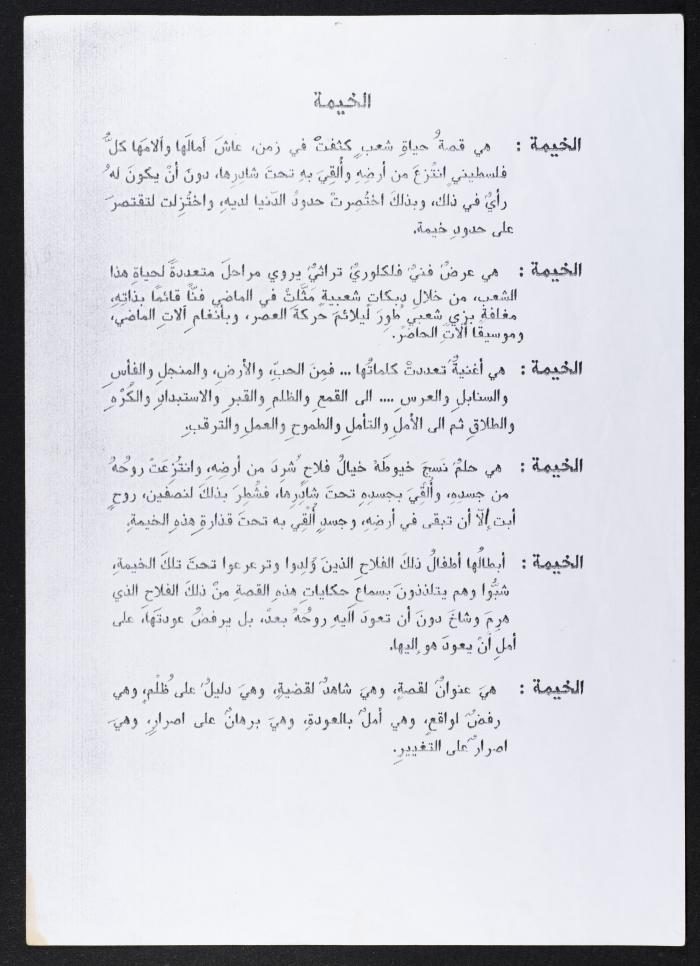 الخيمة
الخيمة : هي قصةُ حياةِ شعبٍ كثفتْ في زمن، عاشَ آمالَها وآلامَها كلُّ
فلسطينيٍ انتُزعَ من أرضِهِ وأُلقِيَ بهِ تحتَ شادِرِها، دونَ أنْ يكونَ لهُ
رأيٌ في ذلك، وبذلكَ اختُصِرتْ حدودُ الدّنيا لديهِ، واختُزِلت لتقتصرَ
على حدودِ خيمة.
الخيمة : هي عرضٌ فنيٌ فلكلوريٌ تراثيٌ يروي مراحلَ متعددةً لحياةِ هذا
الشعب، من خلالِ دبكاتٍ شعبيةٍ مَثَّلتْ في الماضي فنًّا قائمًا بذاتِهِ،
مغافة بزيٍ شعبيٍ طُوِرَ ليلائمَ حركةَ العصر، وبأنغامِ آلاتِ الماضي،
وموسيقًا آلاتِ الحاضر.
الخيمة : هي أغنيةٌ تعددتْ كلماتُها ... فمِنَ الحبِّ، والأرضِ، والمنجلِ والفأسِ
والسنابلِ والعرسِ .... الى القمعِ والظلمِ والقبرِ والاستبدادِ والكُرْهِ
والطلاقِ ثم الى الأملِ والتأملِ والطموحِ والعملِ والترقبِ.
الخيمة : هي حلمٌ نَسجَ خيوطَهُ خيالُ فلاحٍ شُرِدَ من أرضِهِ، وانتُزِعَتْ روحُهُ
من جسدِهِ، وأُلقِيَ بجسدِهِ تحتَ شادِرِها، فشُطِرَ بذلكَ لنصفين، روحٍ
أبت إلّا أن تبقى في أرضِهِ، وجسدٍ أُلقِي به تحتَ قذارةِ هذهِ الخيمةِ.
الخيمة : أبطالُها أطفالُ ذلكَ الفلاحِ الذينَ وُلِدوا وترعرعوا تحتَ تلكَ الخيمةِ،
شبُّوا وهم يتلذذونَ بسماعِ حكاياتِ هذهِ القصةِ منْ ذلكَ الفلاحِ الذي
هرِمَ وشاخَ دونَ أن تعودَ اليهِ روحُهُ بعدْ، بل يرفضُ عودتَها، على
أملِ أنْ يعودَ هو إليها.
الخيمة : هيَ عنوانٌ لقصةٍ، وهيَ شاهدٌ لقضيةٍ، وهيَ دليلٌ على ظُلْمٍ، وهي
رفضٌ لواقعٍ، وهي أملٌ بالعودةِ، وهيَ برهانٌ على اصرارٍ، وهيَ
اصرارٌ على التغييرِ.